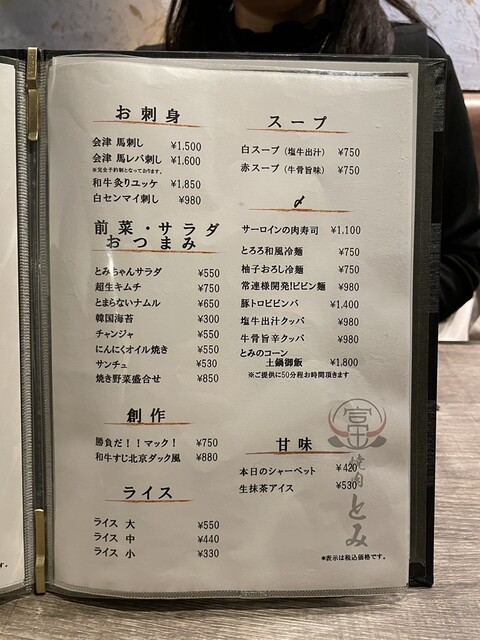 お刺身
会津 馬刺し ¥1,500
会津 馬レバ刺し ¥1,600
※完全予約制となっております。
和牛炙りユッケ ¥1,850
白センマイ刺し ¥980
前菜・サラダ
おつまみ
とみちゃんサラダ ¥550
超生キムチ ¥750
とまらないナムル ¥650
韓国海苔 ¥300
チャンジャ ¥550
にんにくオイル焼き ¥550
サンチュ ¥530
焼き野菜盛合せ ¥850
創作
勝負だ!!マック! ¥750
和牛すじ北京ダック風 ¥880
ライス
ライス 大 ¥550
ライス 中 ¥440
ライス 小 ¥330
スープ
白スープ(塩牛出汁) ¥750
赤スープ(牛骨旨味) ¥750
〆
サーロインの肉寿司 ¥1,100
とろろ和風冷麺 ¥750
柚子おろし冷麺 ¥750
常連様開発!ビビン麺 ¥980
豚トロビビンバ ¥1,400
塩牛出汁クッパ ¥980
牛骨旨辛クッパ ¥980
とみのコーン
土鍋御飯 ¥1,800
※ご提供に50分程お時間頂きます
甘味
本日のシャーベット ¥420
生抹茶アイス ¥530
富
焼肉とみ
*表示は税込価格です。
す。